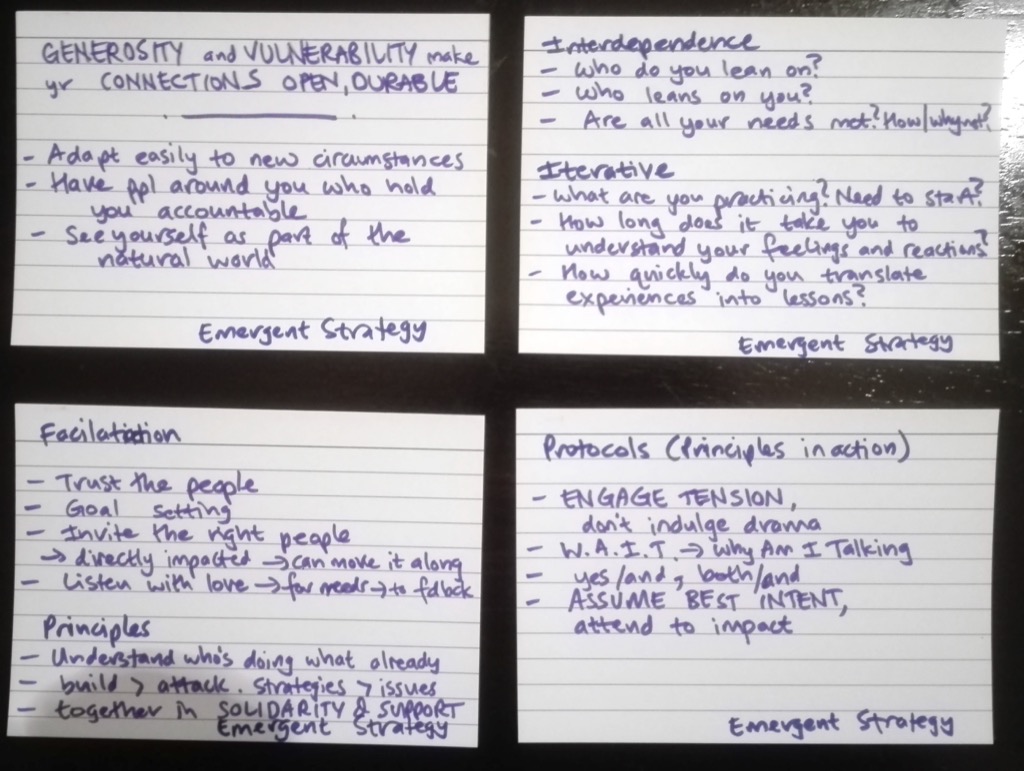 GENEROSITY and VULNERABILITY make
yr CONNECTIONS OPEN, DURABLE
- Adapt easily to new circumstances
- Have ppl around you who hold
you accountable
- See yourself as part of the
natural world
Emergent Strategy
Interdependence
- Who do you lean on?
- Who leans on you?
- Are all your needs met? How/why not?
Iterative
- What are you practicing? Need to start?
- How long does it take you to
understand your feelings and reactions?
- How quickly do you translate
experiences into lessons?
Emergent Strategy
Facilatation
- Trust the people
- Goal setting
- Invite the right people
→ directly impacted → can move it along
- Listen with love → for needs → to fdback
Principles
- Understand who's doing what already
- build > attack. Strategies > issues
- together in SOLIDARITY & SUPPORT
Emergent Strategy
Protocols (Principles in action)
- ENGAGE TENSION,
don't indulge drama
- W.A.I.T. → Why Am I Talking
- yes/and, both/and
- ASSUME BEST INTENT,
attend to impact
Emergent Strategy